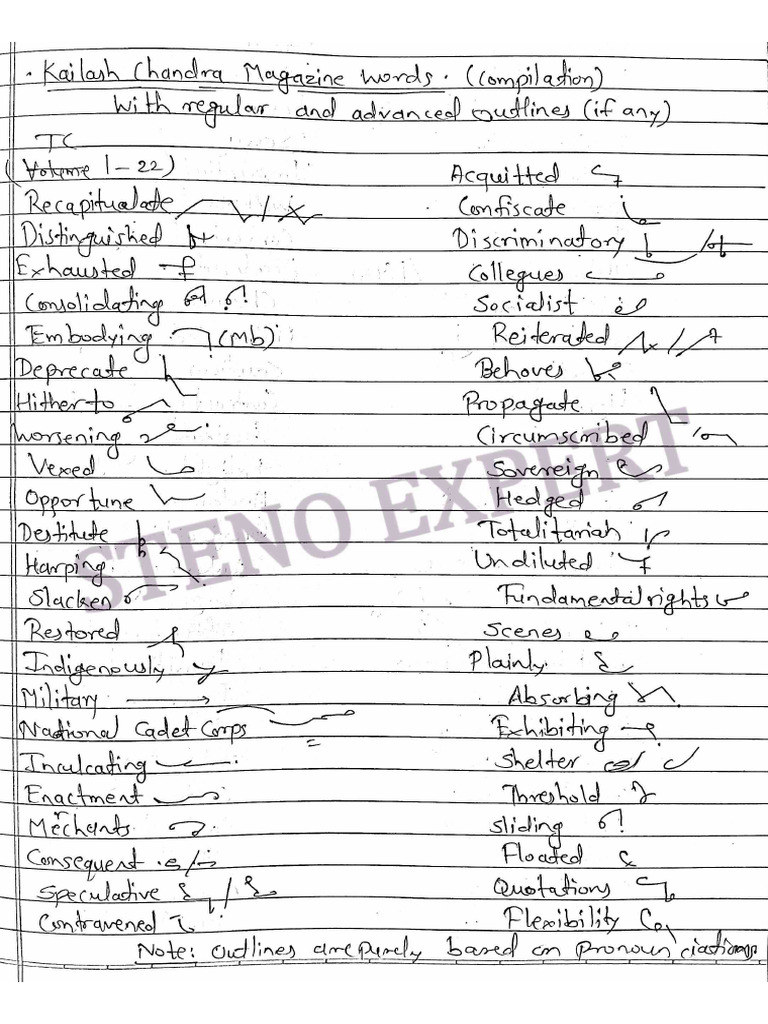 . Kailash Chandra Magazine words. (Compilation)
With regular and advanced outlines (if any)
TC
(Volume 1-22)
Acquitted
Recapitualate
Confiscate
Distinguished
Discriminatory
Exhausted
Collegues
Consolidating
Socialist
Embodying (Mb)
Reiterated
Deprecate
Behoves
Hither to
Propagate
Worsening
Circumscribed
Vexed
Sovereign
Opportune
Hedged
Destitute
Totalitarian
Harping
Undiluted
Slacken
Fundamental rights
Restored
Scenes
Indigenously
Plainly
Military
Absorbing
National Cadet Corps
Exhibiting
Inculcating
Shelter
Enactment
Threshold
Merchants
Sliding
Consequent
Floated
Speculative
Quotations
Contravened
Flexibility
Note: Outlines are purely based on pronounciations
STENO EXPERT